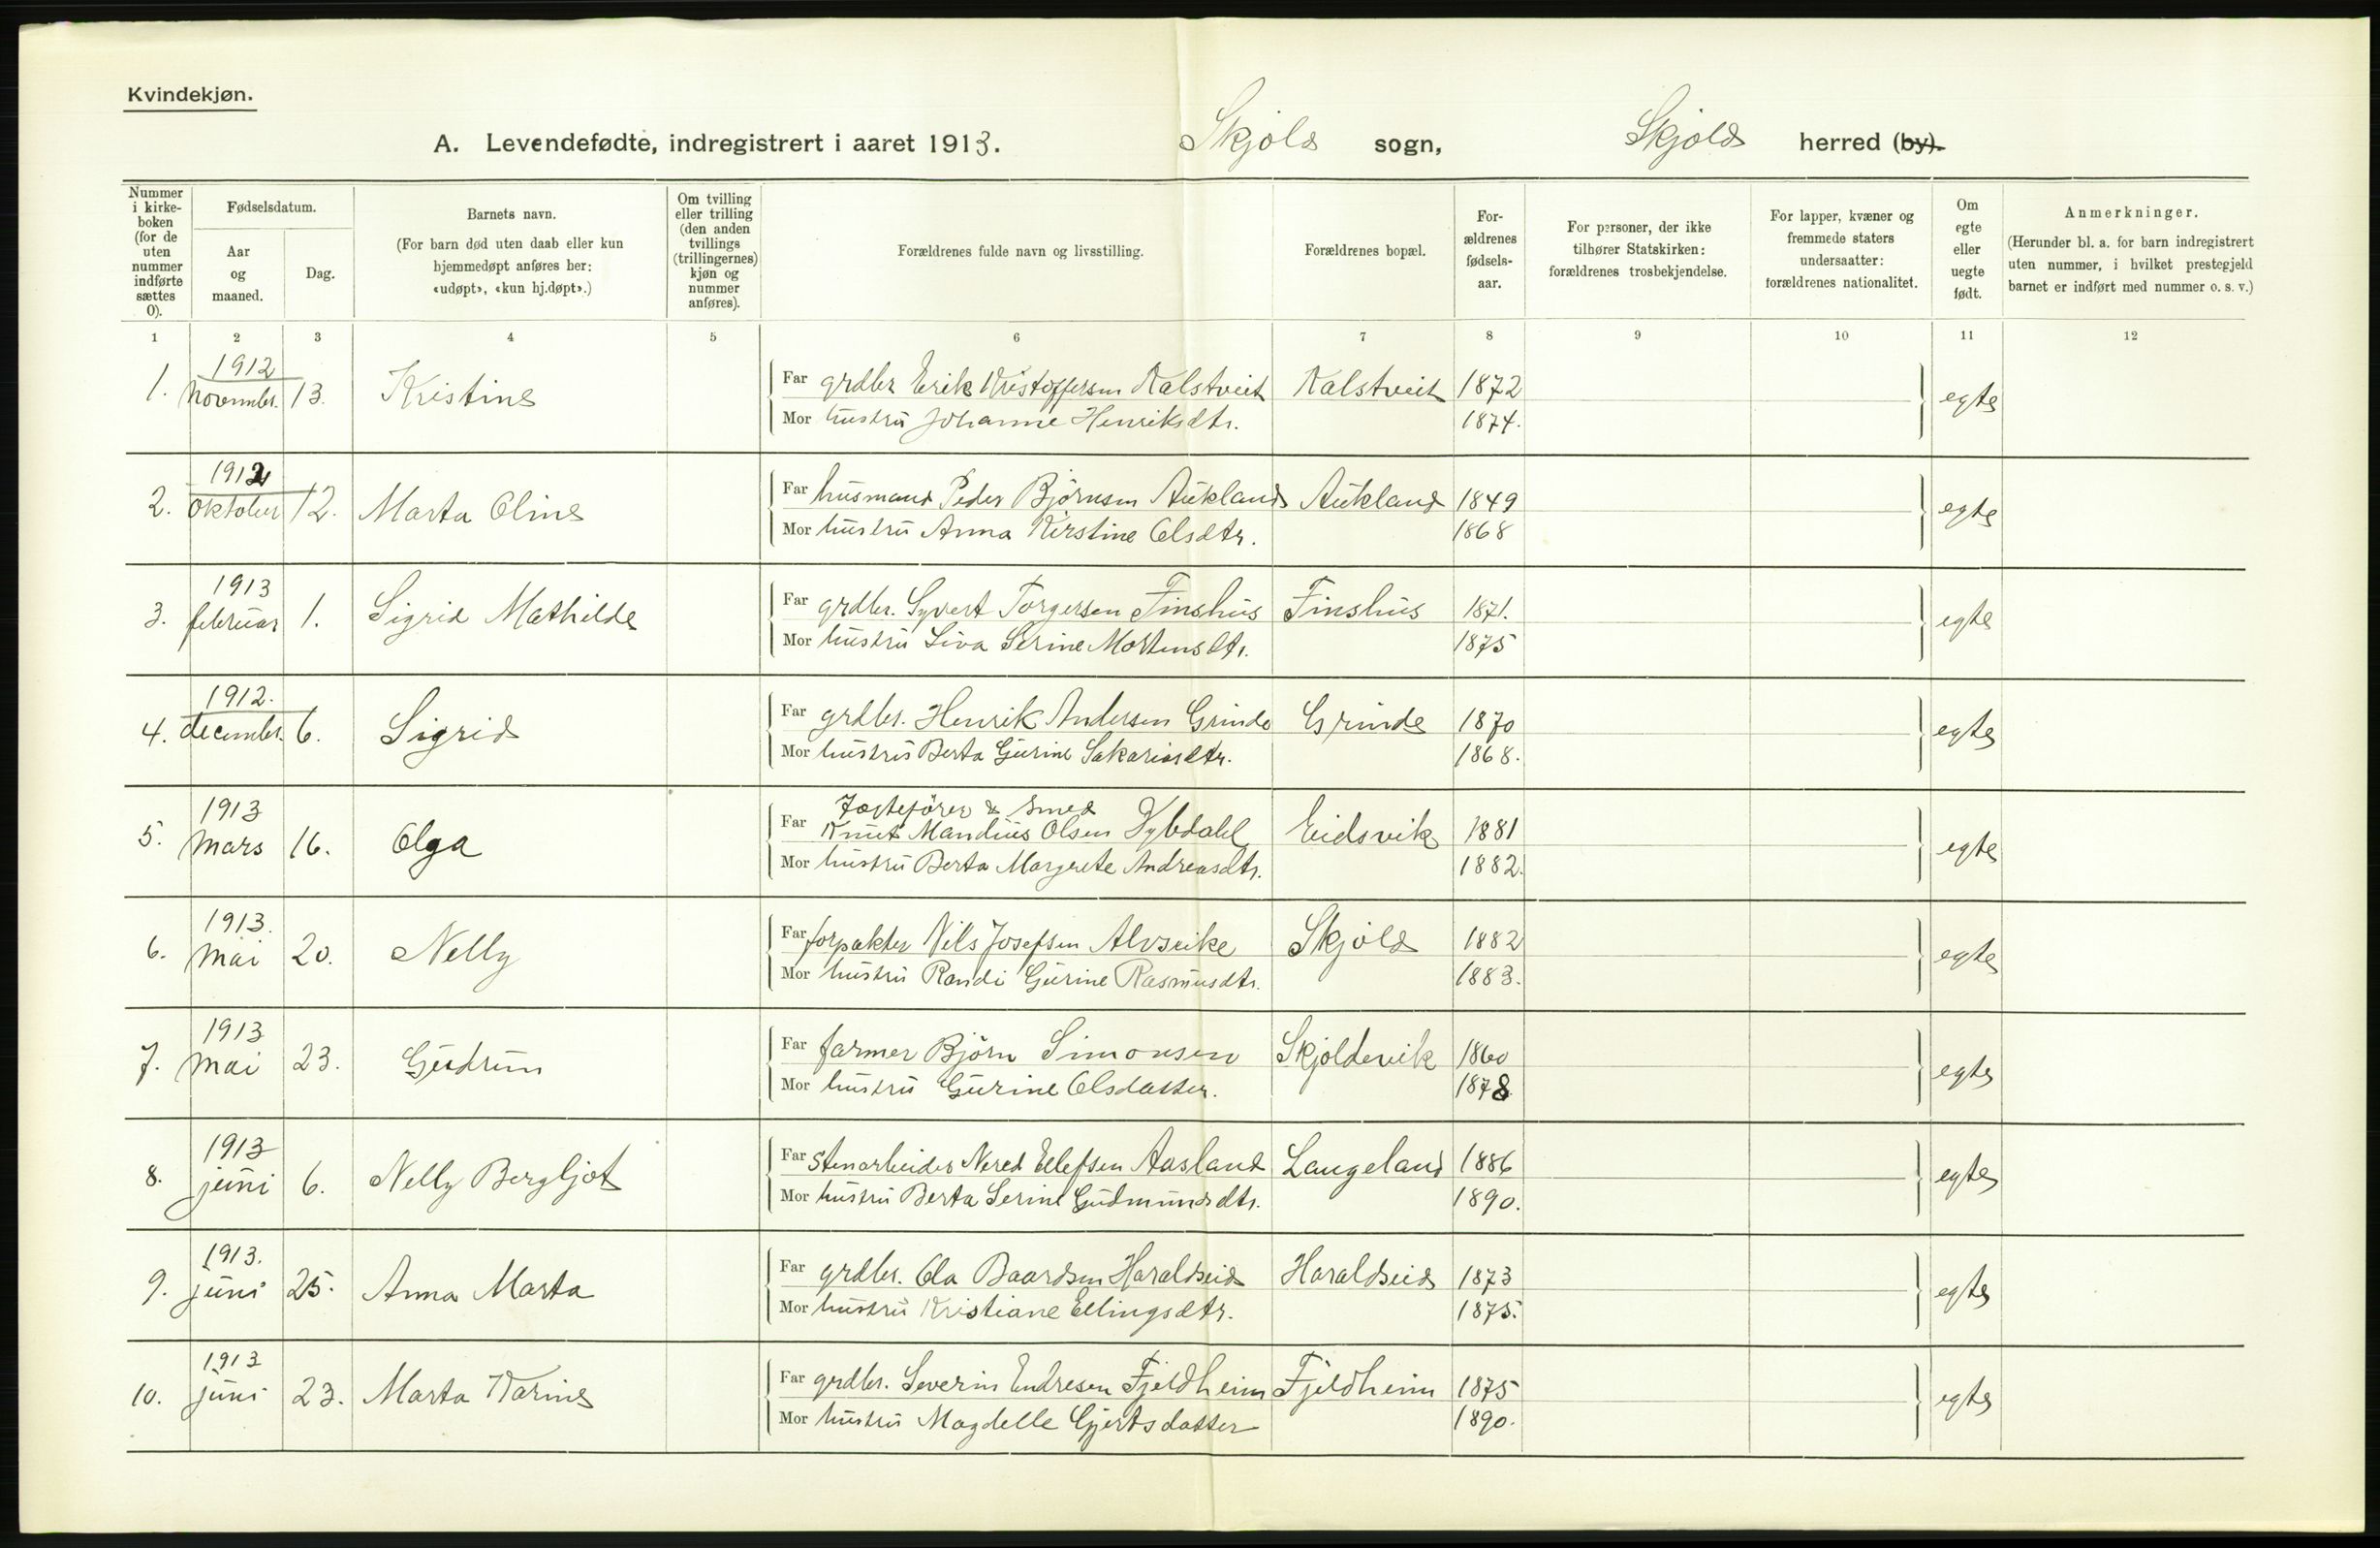 Kvindekjøn.
A. Levendefødte, indregistrert i aaret 1913. Skjold sogn, Skjold herred (by).
Nummer i kirke-boken (for de uten nummer indførte sættes 0).
Fødselsdatum.
Aar og maaned.
Dag.
Barnets navn.
(For barn død uten daab eller kun hjemmedøpt anføres her: «udøpt», «kun hj.døpt».)
Om tvilling eller trilling (den anden tvillings (trillingernes) kjøn og nummer anføres).
Forældrenes fulde navn og livsstilling.
Forældrenes bopæl.
For-ældrenes fødsels-aar.
For personer, der ikke tilhører Statskirken: forældrenes trosbekjendelse.
For lapper, kvæner og fremmede staters undersaatter: forældrenes nationalitet.
Om egte eller uegte født.
Anmerkninger.
(Herunder bl. a. for barn indregistrert uten nummer, i hvilket prestegjeld barnet er indført med nummer o. s. v.)
1 2 3 4 5 6 7 8 9 10 11 12
1912
1. November. 13. Kristine Far grdbr Erik Kristoffersen Kalstveit Kalstveit 1872 egte
Mor hustru Johanne Henriksdtr. 1874.
1912
2. Oktober 12. Marta Oline Far husmand Peder Björnsen Aukland Aukland 1849 egte
Mor hustru Anna Kirstine Olsdtr. 1868
1913
3. februar 1. Sigrid Mathilde Far grdbr. Syvert Torgersen Finshus Finshus 1871. egte
Mor hustru Siva Serine Mortensdtr. 1875
1912.
4. december. 6. Sigrid Far grdbr. Henrik Andersen Grinde Grinde 1870 egte
Mor hustru Berta Gurine Sakariasdtr. 1868.
1913 Jægtefører & smed
5. Mars 16. Olga Far Knut Mandius Olsen Dybdahl Eidsvik 1881 egte
Mor hustru Berta Margrete Andreasdtr. 1882.
1913.
6. Mai 20. Nelly Far forpakter Nils Josefsen Alvseike Skjold 1882 egte
Mor hustru Randi Gurine Rasmusdtr. 1883.
1913
7. Mai 23. Gudrun Far farmer Björn Simonsen Skjoldevik 1860 egte
Mor hustru Gurine Olsdatter. 1878
1913
8. juni 6. Nelly Bergljot Far Stenarbeider Nered Ellefsen Aasland Langeland 1886 egte
Mor hustru Berta Serine Gudmundsdtr. 1890.
1913.
9. juni 25. Anna Marta Far grdbr. Ola Baardsen Haraldseid Haraldseid 1873 egte
Mor hustru Kristiane Ellingsdtr. 1875.
1913
10. juni 23. Marta Karine Far grdbr. Severin Endresen Fjeldheim Fjeldheim 1875 egte
Mor hustru Magdelle Gjertsdatter 1890.